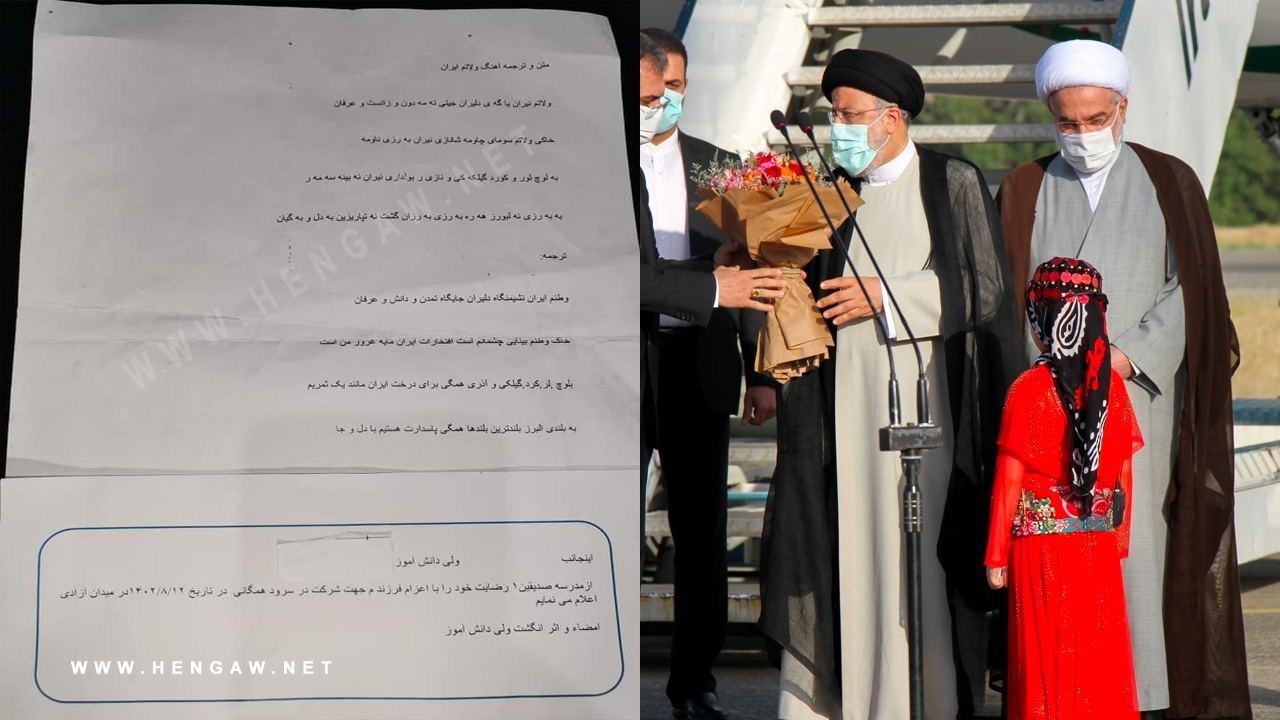 متن و ترجمه اهنگ ولاتم ایران
ولاتم ئیران یا گه ی دلیران جیتی ته مه دون و زانست و عرفان
خاکی ولاتم سومای چاومه شانازی ئیران به رزی ناومه
به لوچ لور و کورد گیلکه کی و نازی ر بواداری ئیران ئه بینه سه مه ر
به به رزی ئه لبورز هه ره به رزی به رزان گشت ئه تپاریزین به دل و به گیان
ترجمه:
وطنم ایران نشیمنگاه دلیران جایگاه تمدن و دانش و عرفان
خاک وطنم بینایی چشمانم است افتخارات ایران مایه غرور من است
بلوچ ,لر,کرد,گیلکی و آذری همگی برای درخت ایران مانند یک ثمریم
به بلندی البرز بلندترین بلندها همگی پاسدارت هستیم با دل و جا
WWW.HENGAW.NET
اینجانب ولی دانش آموز
ازمدرسه صدیقین۱ رضایت خود را با اعزام فرزند م جهت شرکت در سرود همگانی در تاریخ ۱۴۰۲/۸/۱۲در میدان آزادی
اعلام می نمایم
امضاء و اثر انگشت ولی دانش آموز
WWW.HENGAW.NET